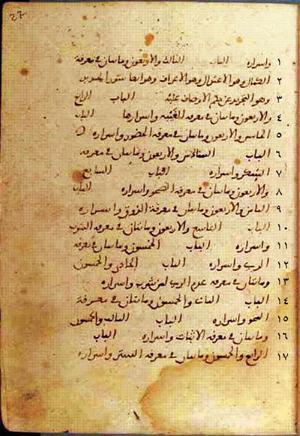 27
١ واسراره الباب الثالث والاربعون ومايتان في معرفة
٢ الكمال وهو الاعتزال وهو الاعراف وهو
٣ وهو عن حكم الاوصاف عليه الباب الرابع
٤ والاربعون ومايتان في معرفة الغيبة واسرارها الباب
٥ الخامس والاربعون ومايتان في معرفة الحضور واسراره
٦ الباب السادس والاربعون ومايتان في معرفة
٧ السكر واسراره الباب السابع
٨ والاربعون ومايتان في معرفة الصحو واسراره الباب
٩ الثامن والاربعون ومايتان في معرفة الذوق واسراره
١٠ الباب التاسع والاربعون ومايتان في معرفة الشرب
١١ واسراره الباب الخمسون ومايتان في معرفة
١٢ الري واسراره الباب الحادي والخمسون
١٣ ومايتان في معرفة عدم الري لمن شرب واسراره
١٤ الباب الثاني والخمسون ومايتان في معرفة
١٥ المحو واسراره الباب الثالث والخمسون
١٦ ومايتان في معرفة الاثبات واسراره الباب
١٧ الرابع والخمسون ومايتان في معرفة الستر واسراره